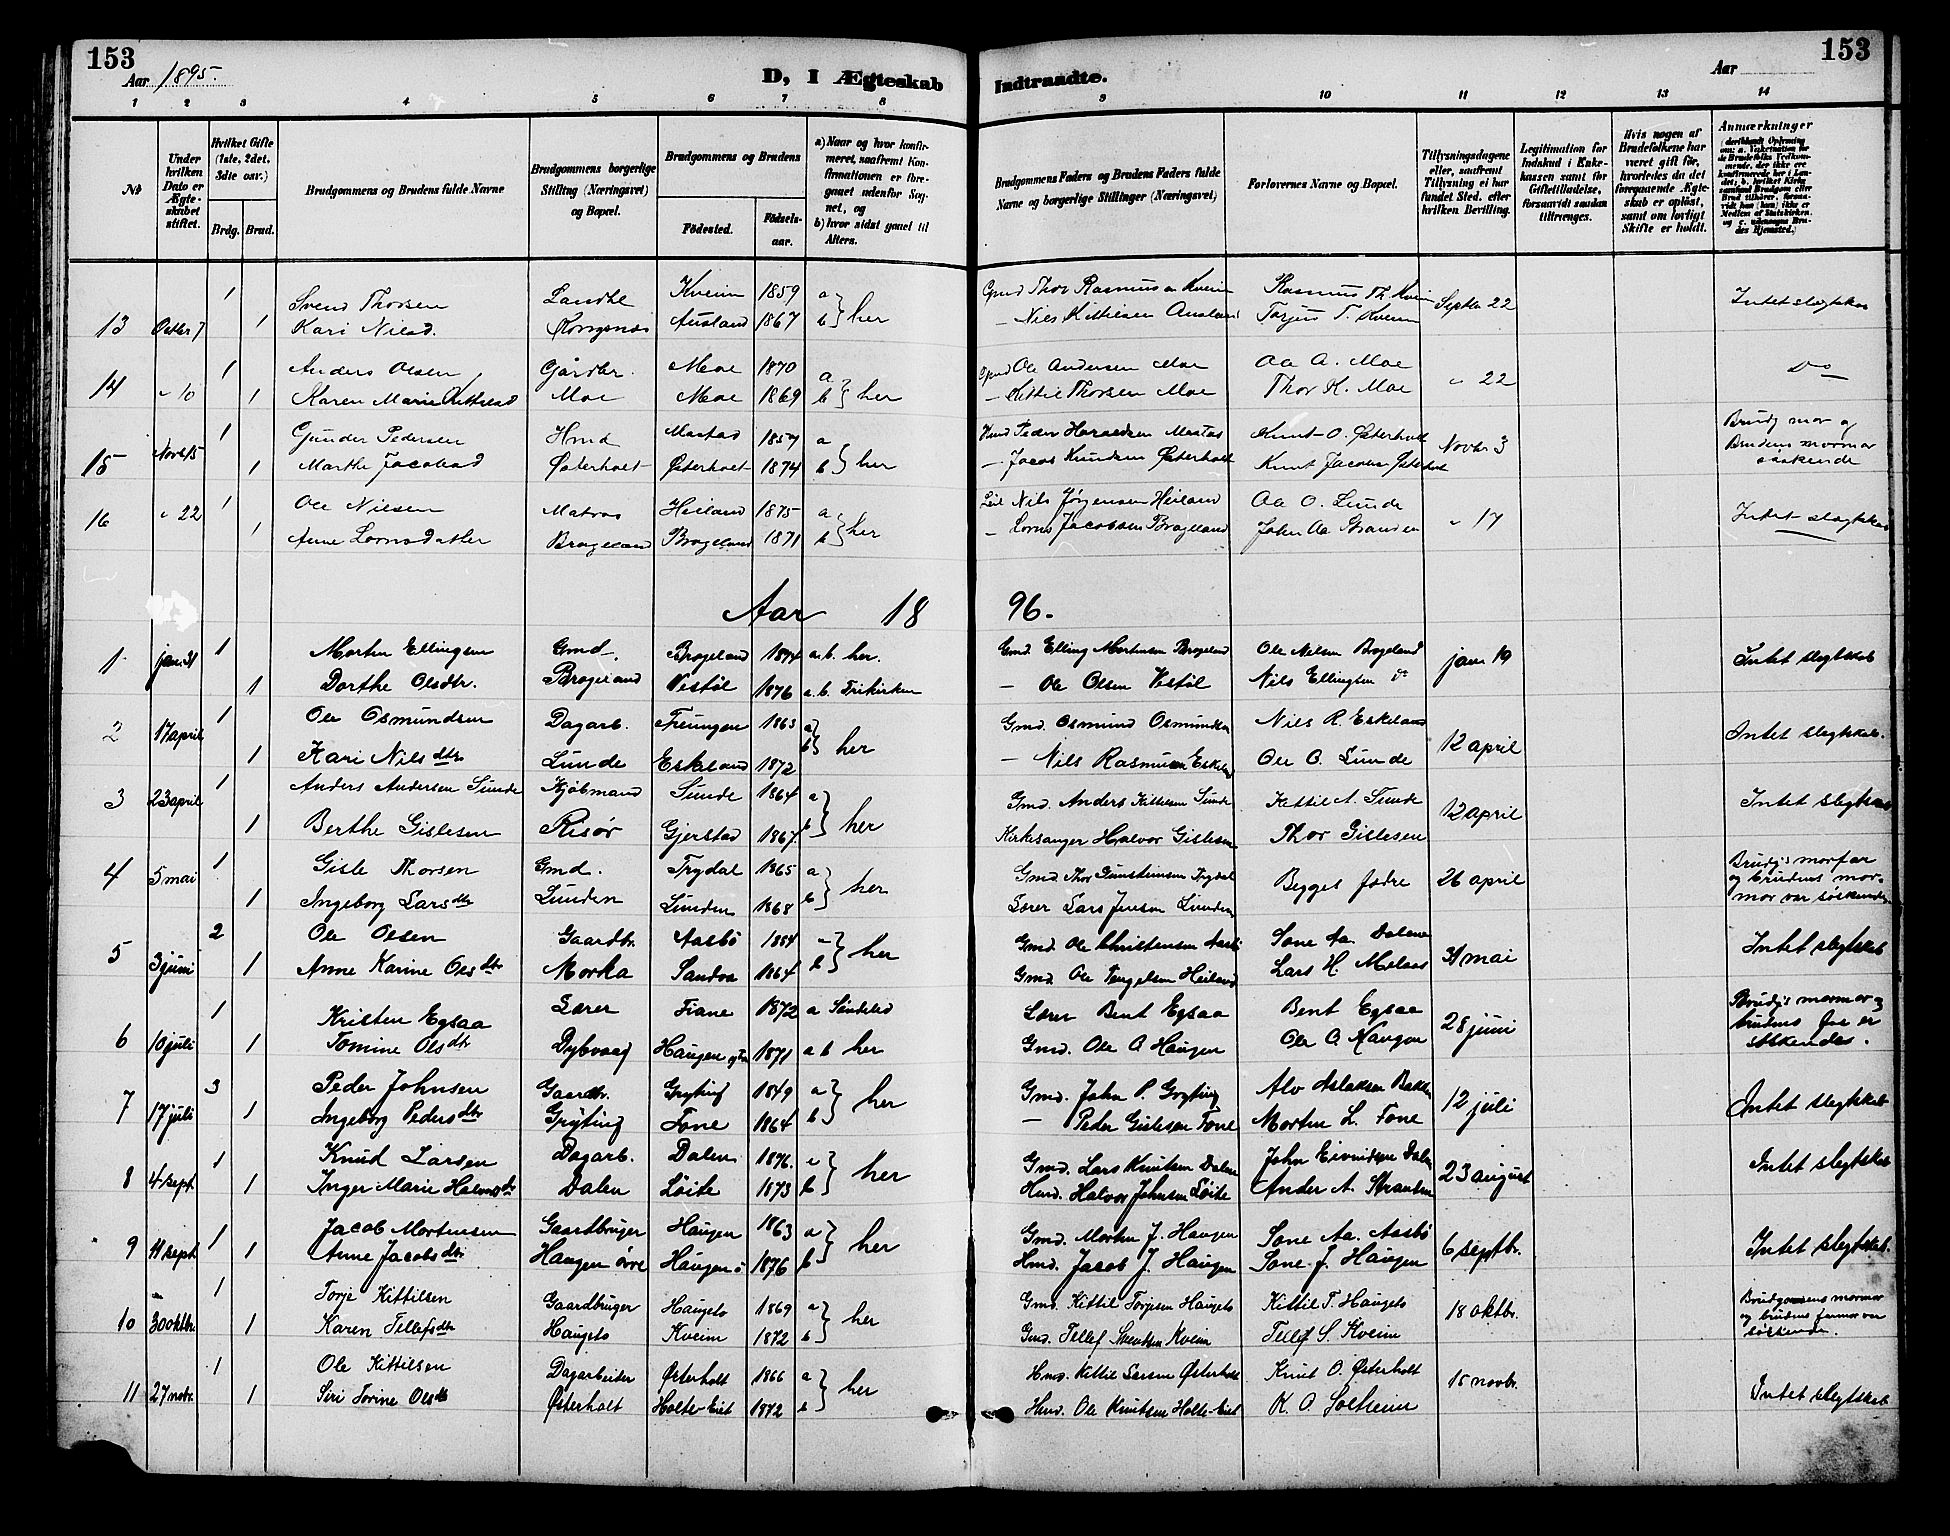 153
Aar 1895.
D, I Ægteskab Indtraadte.
Aar
153
1 2 3 4 5 6 7 8 9 10 11 12 13 14
No
Under hvilken Dato er Ægteskabet stiftet.
Hvilket Gifte (1ste, 2det, 3die osv.)
Brdg. Brud.
Brudgommens og Brudens fulde Navne
Brudgommens borgerlige Stilling (Næringsvei) og Bopæl.
Brudgommens og Brudens
Fødested. Fødselsaar.
a) Naar og hvor konfirmeret, saafremt Konfirmationen er foregaaet udenfor Sognet, og
b) hvor sidst gaaet til Alters.
Brudgommens Faders og Brudens Faders fulde Navne og borgerlige Stillinger (Næringsvei)
Forlovernes Navne og Bopæl.
Tillysningsdagene eller, saafremt Tillysning ei har fundet Sted, efter hvilken Bevilling.
Legitimation for Indskud i Enkekassen samt for Giftetilladelse, forsaavidt saadan tiltrænges.
Hvis nogen af Brudefolkene har været gift før, hvorledes da det foregaaende Ægteskab er opløst, samt om lovligt Skifte er holdt.
Anmærkninger
1 Svend Thorsen Landhl Kveim 1859 a Gmd Thor Rasmusen Kveim Rasmus Th. Kveim
13 Octbr 7 1 Kari Nilsd. Kongsnæs Ausland 1867 b her Nils Kittilsen Ausland Torjus T. Kveim Septbr 22 Intet slegtskab
1 Anders Olsen Gårdbr. Moe 1870 a Gmd Ole Andersen Moe Aa A. Moe
14 " 10 1 Karen Marie Kittilsd Moe Moe 1869 b her Kittil Thorsen Moe Thor K. Moe " 22 Do
1 Gunder Pedersen Hmd 1857 a Hmd Peder Knut O. Østerholt Brudg mor og
15 Novb 15 1 Marthe Jacobsd Østerholt Østerholt 1874 b her Jacob Knudsen Østerholt Knut Jacobsen Østerholt Novbr 3 Brudens mormor søskende
1 Ole Nilsen Matros Heiland 1875 a Nils Jørgensen Heiland Aa O. Lunde
16 " 22 1 Anne Lornsdatter Brogeland Brogeland 1871 b her Lorns Jacobsen Brogeland John Aa Stranden " 17 Intet slegtskab
Aar 18 96.
1 Morten Ellingsen Gmd. Brogeland 1874 a.b. her. Gmd. Elling Mortensen Brogeland Ole Nilsen Brogeland
1 jan. 31 1 Dorthe Olsdtr. Brogeland Vestøl 1876 a.b. Frikirken Ole Olsen Vestøl Nils Ellingsen do jan 19 Intet slegtskab
1 Ole Osmundsen Dagarb. Treungen 1863 a Gmd. Osmund Osmundsen Nils R. Eskeland
2 17 april 1 Kari Nilsdtr Lunde Eskeland 1872 b her Nils Rasmusen Eskeland Ole O. Lunde 12 april Intet slegtskab.
1 Anders Andersen Sunde Kjøbmand Sunde 1864 a Gmd. Anders Kittilsen Sunde Kittil A. Sunde
3 23 april 1 Berthe Gislesen Risør Gjerstad 1867. b her Kirkesanger Halvor Gislesen Thor Gislesen 12 april Intet slegtskab
1 Gisle Thorsen Gmd. Trydal 1865 a Gmd. Thor Gunsteinsen Trydal Brudg's morfar
4 5 mai 1 Ingeborg Larsdtr Lunden Lunden 1868 b her Lærer Lars Jensen Lunden Begges fædre 26 april og brudens mormor var søskende
2 Ole Olsen Gaardbr. Aasbø 1854 a Gmd. Ole Christensen Aasbø Sone Aa. Dalene
5 3 juni 1 Anne Karine Olsdtr Morka Sandvo 1864 b her Gmd. Ole Tengelsen Heiland Lars H. Melaas 31 mai Intet slegtskab
1 Kristen Egsaa Lærer Fiane 1872 a Søndeled Lærer Bent Egsaa Bent Egsaa Brudg's mormor og
6 10 juli 1 Tomine Olsdtr Dybvaag Haugen 1871 a b her Gmd. Ole O. Haugen Ole O. Haugen 28 juni brudens far er søskende.
3 Peder Johnsen Gaardbr. Gryting 1849 a Gmd. John P. Gryting Alv Aslaksen Bakken
7 17 juli 1 Ingeborg Pedersdtr Gryting Fone 1864 b her Peder Gislesen Fone Morten L. Fone 12 juli Intet slegtskab
1 Knud Larsen Dagarb. Dalen 1876. a Gmd. Lars Knutsen Dalen John Eivindsen Dalen
8 4 sept. 1 Inger Marie Halvorsdtr Dalen Løite 1873 b her Hmd. Halvor Johnsen Løite Anders A. Stranden 23 august Intet slegtskab
1 Jacob Mortensen Gaardbruger Haugen 1863 a Gmd. Morten J. Haugen Sone Aa. Aasbø
9 11 sept. 1 Anne Jacobsdtr Haugen øvre Haugen ø 1876 b her Hmd. Jacob J. Haugen Sone J. Haugen 6 septbr. Intet slegtskab.
1 Torje Kittilsen Gaardbruger Haugets 1869 a Gmd. Kittil Torjesen Haugets Kittil T. Haugets Brudgomsens mormor
10 30 oktbr. 1 Karen Tellefsdtr Haugets Kveim 1872 b her Gmd. Tellef Svendsen Kveim Tellef S. Kveim 18 oktbr. og brudens farmor var søskende.
1 Ole Kittilsen Dagarbeider Østerholt 1866 a Hmd. Kittil Larsen Østerholt Knut O. Østerholt
11 27 novbr. 1 Siri Torine Olsdtr Østerholt Holte-Eiet 1872 b her Hmd. Ole Knutsen Holte-Eiet K. O. Solheim 15 novbr. Intet slegtskab